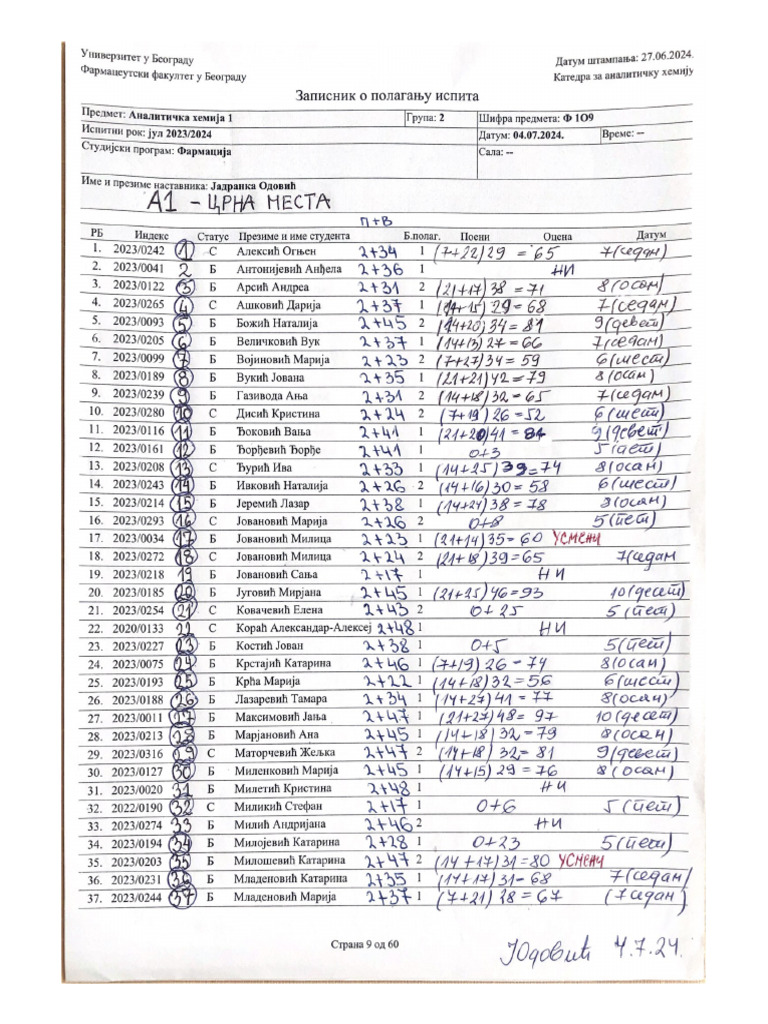 Универзитет у Београду
Фармацеутски факултет у Београду
Датум штампања: 27.06.2024.
Катедра за аналитичку хемију
Записник о полагању испита
Предмет: Аналитичка хемија 1 Група: 2 Шифра предмета: Ф 1О9
Испитни рок: јул 2023/2024 Датум: 04.07.2024. Време: --
Студијски програм: Фармација Сала: --
Име и презиме наставника: Јадранка Одовић
А1 - ЦРНА МЕСТА
П+В
РБ Индекс Статус Презиме и име студента Б.полаг. Поени Оцена Датум
1. 2023/0242 1 С Алексић Огњен 2+34 1 (7+22) 29 = 65 7 (седам)
2. 2023/0041 2 Б Антонијевић Анђела 2+36 1 НИ
3. 2023/0122 3 Б Арсић Андреа 2+31 2 (21+17) 38 = 71 8 (осам)
4. 2023/0265 4 С Ашковић Дарија 2+37 1 (14+15) 29 = 68 7 (седам)
5. 2023/0093 5 Б Божић Наталија 2+45 2 (14+20) 34 = 81 9 (девет)
6. 2023/0205 6 Б Величковић Вук 2+37 1 (14+13) 27 = 66 7 (седам)
7. 2023/0099 7 Б Војиновић Марија 2+23 2 (7+27) 34 = 59 6 (шест)
8. 2023/0189 8 Б Вукић Јована 2+35 1 (21+21) 42 = 79 8 (осам)
9. 2023/0239 9 Б Газивода Ања 2+31 2 (14+18) 32 = 65 7 (седам)
10. 2023/0280 10 С Дисић Кристина 2+24 2 (7+19) 26 = 52 6 (шест)
11. 2023/0116 11 Б Ђоковић Вања 2+41 1 (21+20) 41 = 84 9 (девет)
12. 2023/0161 12 Б Ђорђевић Ђорђе 2+41 1 0+3 5 (пет)
13. 2023/0208 13 С Ђурић Ива 2+33 1 (14+25) 39 = 74 8 (осам)
14. 2023/0243 14 Б Ивковић Наталија 2+26 2 (14+16) 30 = 58 6 (шест)
15. 2023/0214 15 Б Јеремић Лазар 2+38 1 (14+24) 38 = 78 8 (осам)
16. 2023/0293 16 С Јовановић Марија 2+26 2 0+8 5 (пет)
17. 2023/0034 17 Б Јовановић Милица 2+23 1 (21+14) 35 = 60 УСМЕНИ
18. 2023/0272 18 С Јовановић Милица 2+24 2 (21+18) 39 = 65 7 (седам
19. 2023/0218 19 Б Јовановић Сања 2+17 1 НИ
20. 2023/0185 20 Б Југовић Мирјана 2+45 1 (21+25) 46 = 93 10 (десет)
21. 2023/0254 21 С Ковачевић Елена 2+43 2 0+25 5 (пет)
22. 2020/0133 22 С Кораћ Александар-Алексеј 2+48 1 НИ
23. 2023/0227 23 Б Костић Јован 2+38 1 0+5 5 (пет)
24. 2023/0075 24 Б Крстајић Катарина 2+46 1 (7+19) 26 = 74 8 (осам)
25. 2023/0193 25 Б Крћа Марија 2+22 1 (14+18) 32 = 56 6 (шест)
26. 2023/0188 26 Б Лазаревић Тамара 2+34 1 (14+27) 41 = 77 8 (осам)
27. 2023/0011 27 Б Максимовић Јања 2+47 1 (21+27) 48 = 97 10 (десет)
28. 2023/0213 28 Б Марјановић Ана 2+45 1 (14+18) 32 = 79 8 (осам)
29. 2023/0316 29 С Маторчевић Жељка 2+47 2 (14+18) 32 = 81 9 (девет)
30. 2023/0127 30 Б Миленковић Марија 2+45 1 (14+15) 29 = 76 8 (осам)
31. 2023/0020 31 Б Милетић Кристина 2+48 1 НИ
32. 2022/0190 32 С Миликић Стефан 2+17 1 0+6 5 (пет)
33. 2023/0274 33 Б Милић Андријана 2+46 2 НИ
34. 2023/0194 34 Б Милојевић Катарина 2+28 1 0+23 5 (пет)
35. 2023/0203 35 Б Милошевић Катарина 2+47 2 (14+17) 31 = 80 УСМЕНИ
36. 2023/0231 36 Б Младеновић Катарина 2+35 1 (14+17) 31 = 68 7 (седам)
37. 2023/0244 37 Б Младеновић Марија 2+37 1 (7+21) 28 = 67 (7 седам)
Страна 9 од 60
ЈОдовић 4.7.24.